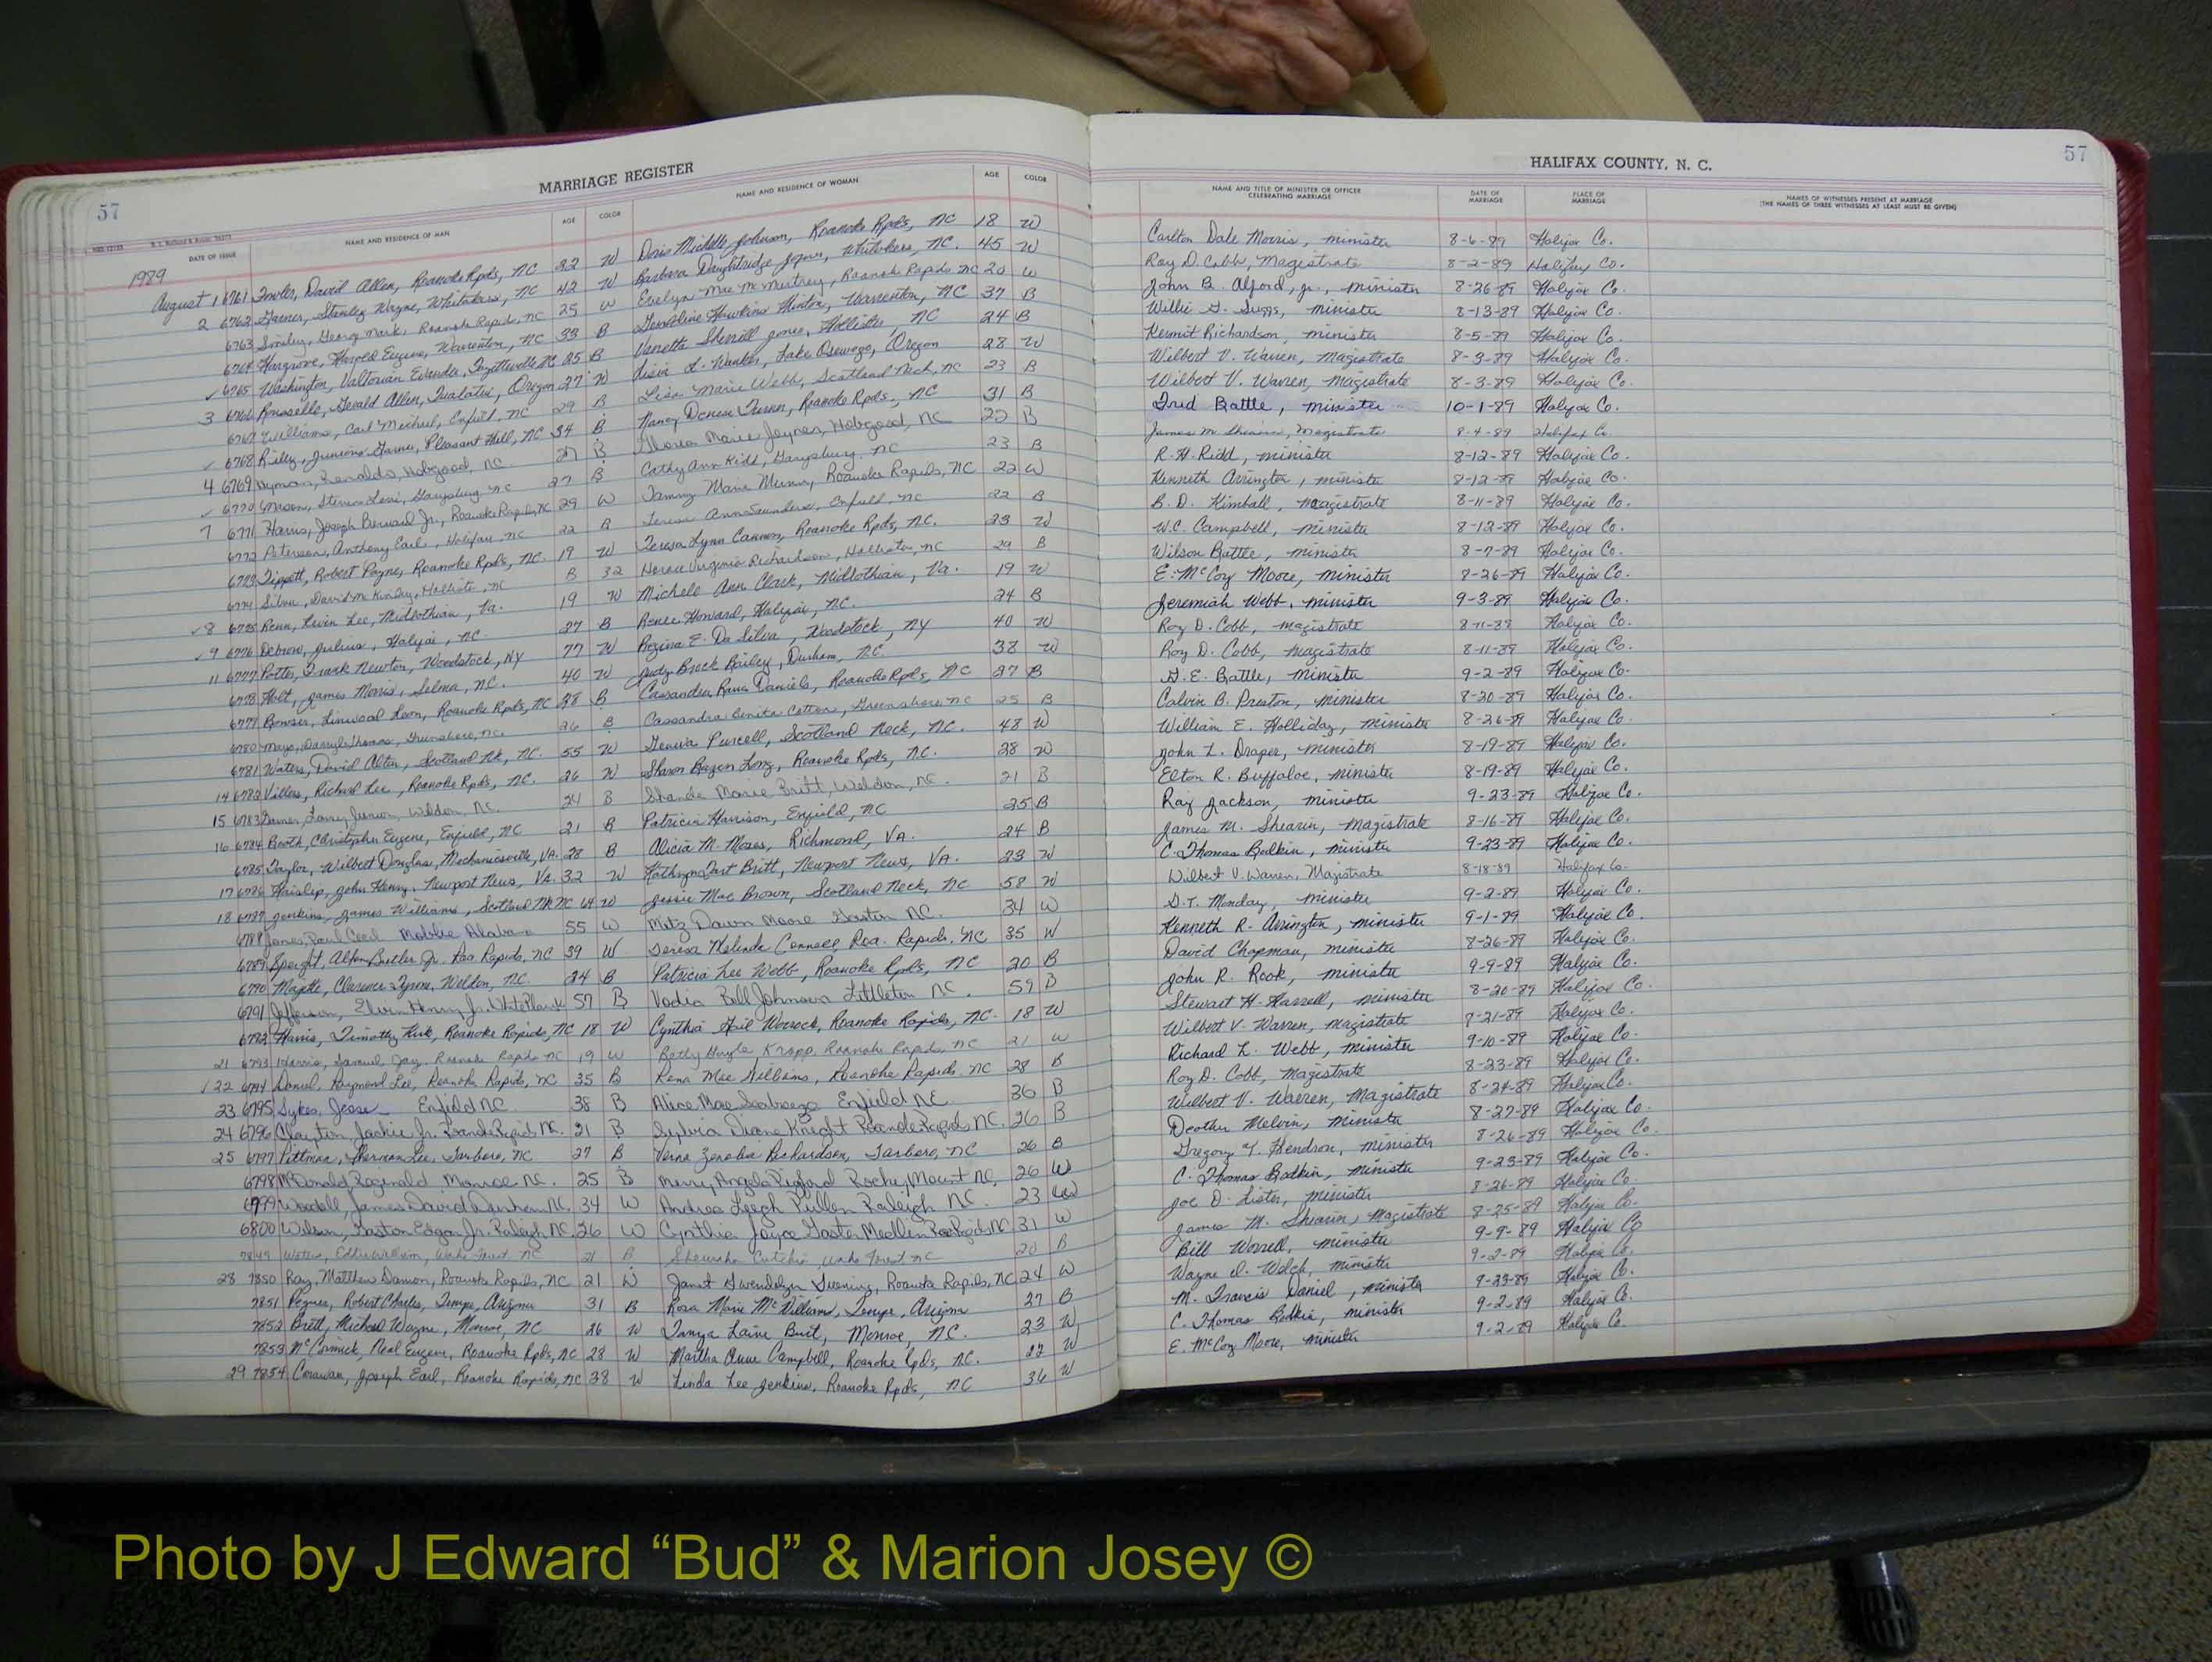 57
MARRIAGE REGISTER
DATE OF ISSUE NAME AND RESIDENCE OF MAN AGE COLOR NAME AND RESIDENCE OF WOMAN AGE COLOR
1989
August 1 6761 Fowler, David Allen, Roanoke Rpds, NC 22 W Doris Michelle Johnson, Roanoke Rpds, NC 18 W
2 6762 Garner, Stanley Wayne, Whitakers, NC 42 W Barbara Daughtridge Joyner, Whitakers, NC. 45 W
6763 Smiley, George Mark, Roanoke Rapids, NC 25 W Evelyn Mae McMurtrey, Roanoke Rapids NC 20 W
6764 Hargrove, Harold Eugene, Warrenton, NC 33 B Hawkins Hinton, Warrenton, NC 37 B
6765 Washington, Valtorian Fayetteville NC 25 B Vanetta Sherrill Jones, Hollister, NC 24 B
3 6766 Rousselle, Gerald Allen, Tualatin, Oregon 27 W Lake Oswego, Oregon 28 W
6767 Williams, Carl Michael, Enfield, NC 29 B Lisa Marie Webb, Scotland Neck, NC 23 B
6768 Garner, Pleasant Hill, NC 34 B Nancy Denise Roanoke Rpds, NC 31 B
4 6769 Hyman, Renaldo, Hobgood, NC 27 B Gloria Marie Joyner, Hobgood, NC 22 B
6770 Steven Levi, Garysburg NC 27 B Cathy Ann Kidd, Garysburg, NC 23 B
7 6771 Harris, Joseph Bernard Jr., Roanoke Rapids, NC 29 W Tammy Marie Munn, Roanoke Rapids, NC 22 W
6772 Peterson, Anthony Earl, Halifax, NC 22 B Teresa Ann Saunders, Enfield, NC 22 B
6773 Tippett, Robert Payne, Roanoke Rpds, NC. 19 W Teresa Lynn Cannon, Roanoke Rpds, NC. 23 W
6774 Silver, David McKinley, Hollister, NC B 32 Virginia Richardson, Hollister, NC 29 B
8 6775 Renn, Kevin Lee, Midlothian, Va. 19 W Michele Ann Clark, Midlothian, Va. 19 W
9 6776 Debrow, Julius, Halifax, NC. 27 B Renee Howard, Halifax, NC. 24 B
11 6777 Potter, Frank Newton, Woodstock, NY 77 W Regina E. Da Silva, Woodstock, NY 40 W
6778 Holt, James Morris, Selma, NC. 40 W Judy Brock Bailey, Durham, NC 38 W
6779 Bowser, Linwood Leon, Roanoke Rpds, NC 28 B Cassandra Daniels, Roanoke Rpds, NC 27 B
6780 Mays, Darryl Thomas, Greensboro, NC. 26 B Cassandra Benita Cotton, Greensboro, NC 25 B
6781 Waters, David Alton, Scotland Nk, NC. 55 W Geneva Purcell, Scotland Neck, NC. 48 W
14 6782 Villers, Richard Lee, Roanoke Rpds, NC. 26 W Sharon Long, Roanoke Rpds, NC. 28 W
15 6783 Garner, Larry Junior, Weldon, NC. 24 B Shanda Marie Britt, Weldon, NC. 21 B
16 6784 Booth, Christopher Eugene, Enfield, NC 21 B Patricia Harrison, Enfield, NC 25 B
6785 Taylor, Wilbert Douglas, Mechanicsville, VA. 28 B Alicia M. Moses, Richmond, VA. 24 B
17 6786 Haislip, John Henry, Newport News, VA. 32 W Kathryn Britt, Newport News, VA. 23 W
18 6787 Jenkins, James Williams, Scotland Nk NC 64 W Jessie Mae Brown, Scotland Neck, NC 58 W
6788 Jones, Paul Cecil Mobile Alabama 55 W Mitzi Dawn Moore Gaston NC. 34 W
6789 Speight, Butler Jr. Roa. Rapids, NC 39 W Teresa Melinda Conner, Roa. Rapids, NC 35 W
6790 Majette, Clarence Tyrone, Weldon, NC. 24 B Patricia Lee Webb, Roanoke Rpds, NC 20 B
6791 Jefferson, Elvin Henry Jr. White Plains 57 B Vodia Bell Johnson Littleton NC. 59 B
6792 Harris, Timothy Kirk, Roanoke Rapids, NC 18 W Cynthia Gail Worsock, Roanoke Rapids, NC. 18 W
21 6793 Harris, Samuel Jay, Roanoke Rapids NC 19 W Betty Gayle Knapp, Roanoke Rapids, NC 21 W
22 6794 Daniel, Raymond Lee, Roanoke Rapids, NC 35 B Rena Mae Williams, Roanoke Rapids NC 28 B
23 6795 Sykes, Jesse Enfield NC 38 B Alice Mae Enfield NC 36 B
24 6796 Clayton, Jackie Jr. Roanoke Rapids NC. 21 B Sylvia Diane Knight Roanoke Rapids NC. 26 B
25 6797 Pittman, Sherman Lee, Tarboro, NC 27 B Verna Zenobia Richardson, Tarboro, NC 26 B
6798 McDonald Reginald Monroe NC. 25 B Merry Angela Pigford Rocky Mount NC, 26 W
6799 Waddell, James David Durham NC. 34 W Andrea Leigh Pullen Raleigh NC. 23 W
6800 Wilson, Gaston Edgar Jr. Raleigh NC. 26 W Cynthia Joyce Gaster Medlin Roa Rapids NC 31 W
7849 Eddie William, Wake Forest NC 21 B Wake Forest NC 20 B
28 7850 Ray, Matthew Damon, Roanoke Rapids, NC 21 W Janet Gwendolyn Roanoke Rapids, NC 24 W
7851 Pegues, Robert Charles, Tempe, Arizona 31 B Rosa Marie McWilliams, Tempe, Arizona 27 B
7852 Brett, Michael Wayne, Monroe, NC 26 W Tanya Laine Monroe, NC. 23 W
7853 McCormick, Neal Eugene, Roanoke Rpds, NC 28 W Martha Anne Campbell, Roanoke Rpds, NC. 27 W
29 7854 Corawan, Joseph Earl, Roanoke Rapids, NC 38 W Linda Lee Jenkins, Roanoke Rpds, NC 36 W
HALIFAX COUNTY, N. C.
57
NAME AND TITLE OF MINISTER OR OFFICER CELEBRATING MARRIAGE DATE OF MARRIAGE PLACE OF MARRIAGE NAMES OF WITNESSES PRESENT AT MARRIAGE
(THE NAMES OF THREE WITNESSES AT LEAST MUST BE GIVEN)
Carlton Dale Morris, minister 8-6-89 Halifax Co.
Roy D. Cobb, Magistrate 8-2-89 Halifax Co.
John B. Alford, Jr., minister 8-26-89 Halifax Co.
Willie G. Suggs, minister 8-13-89 Halifax Co.
Kermit Richardson, minister 8-5-89 Halifax Co.
Wilbert V. Warren, Magistrate 8-3-89 Halifax Co.
Wilbert V. Warren, Magistrate 8-3-89 Halifax Co.
Fred Battle, minister 10-1-89 Halifax Co.
James M. Shearin, Magistrate 8-4-89 Halifax Co.
R. H. Kidd, minister 8-12-89 Halifax Co.
Kenneth Arrington, minister 8-12-89 Halifax Co.
B. D. Kimball, Magistrate 8-11-89 Halifax Co.
W.C. Campbell, minister 8-12-89 Halifax Co.
Wilson Battle, minister 8-7-89 Halifax Co.
E. McCoy Moore, minister 8-26-89 Halifax Co.
Jeremiah Webb, minister 9-3-89 Halifax Co.
Roy D. Cobb, magistrate 8-11-89 Halifax Co.
Roy D. Cobb, magistrate 8-11-89 Halifax Co.
G. E. Battle, minister 9-2-89 Halifax Co.
Calvin B. Preston, minister 8-20-89 Halifax Co.
William E. Holliday, minister 8-26-89 Halifax Co.
John L. Draper, minister 8-19-89 Halifax Co.
Elton R. Buffaloe, minister 8-19-89 Halifax Co.
Ray Jackson, minister 9-23-89 Halifax Co.
James M. Shearin, Magistrate 8-16-89 Halifax Co.
C. Thomas Bodkin, minister 9-23-89 Halifax Co.
Wilbert V. Warren, Magistrate 8-18-89 Halifax Co.
D.T. Monday, minister 9-2-89 Halifax Co.
Kenneth R. Arrington, minister 9-1-89 Halifax Co.
David Chapman, minister 8-26-89 Halifax Co.
John R. Rook, minister 9-9-89 Halifax Co.
Stewart H. Harrell, minister 8-20-89 Halifax Co.
Wilbert V. Warren, magistrate 8-21-89 Halifax Co.
Richard L. Webb, minister 9-10-89 Halifax Co.
Roy D. Cobb, Magistrate 8-23-89 Halifax Co.
Wilbert V. Warren, Magistrate 8-24-89 Halifax Co.
Deother Melvin, minister 8-27-89 Halifax Co.
Gregory Y. Hendron, minister 8-26-89 Halifax Co.
C. Thomas Bodkin, minister 9-23-89 Halifax Co.
Joe D. Lister, minister 8-26-89 Halifax Co.
James M. Shearin, Magistrate 8-25-89 Halifax Co.
Bill Worrell, minister 9-9-89 Halifax Co
Wayne D. Welch, minister 9-2-89 Halifax Co.
M. Francis Daniel, minister 9-23-89 Halifax Co.
C. Thomas Bodkin, minister 9-2-89 Halifax Co.
E. McCoy Moore, minister 9-2-89 Halifax Co.
Photo by J Edward “Bud” & Marion Josey ©